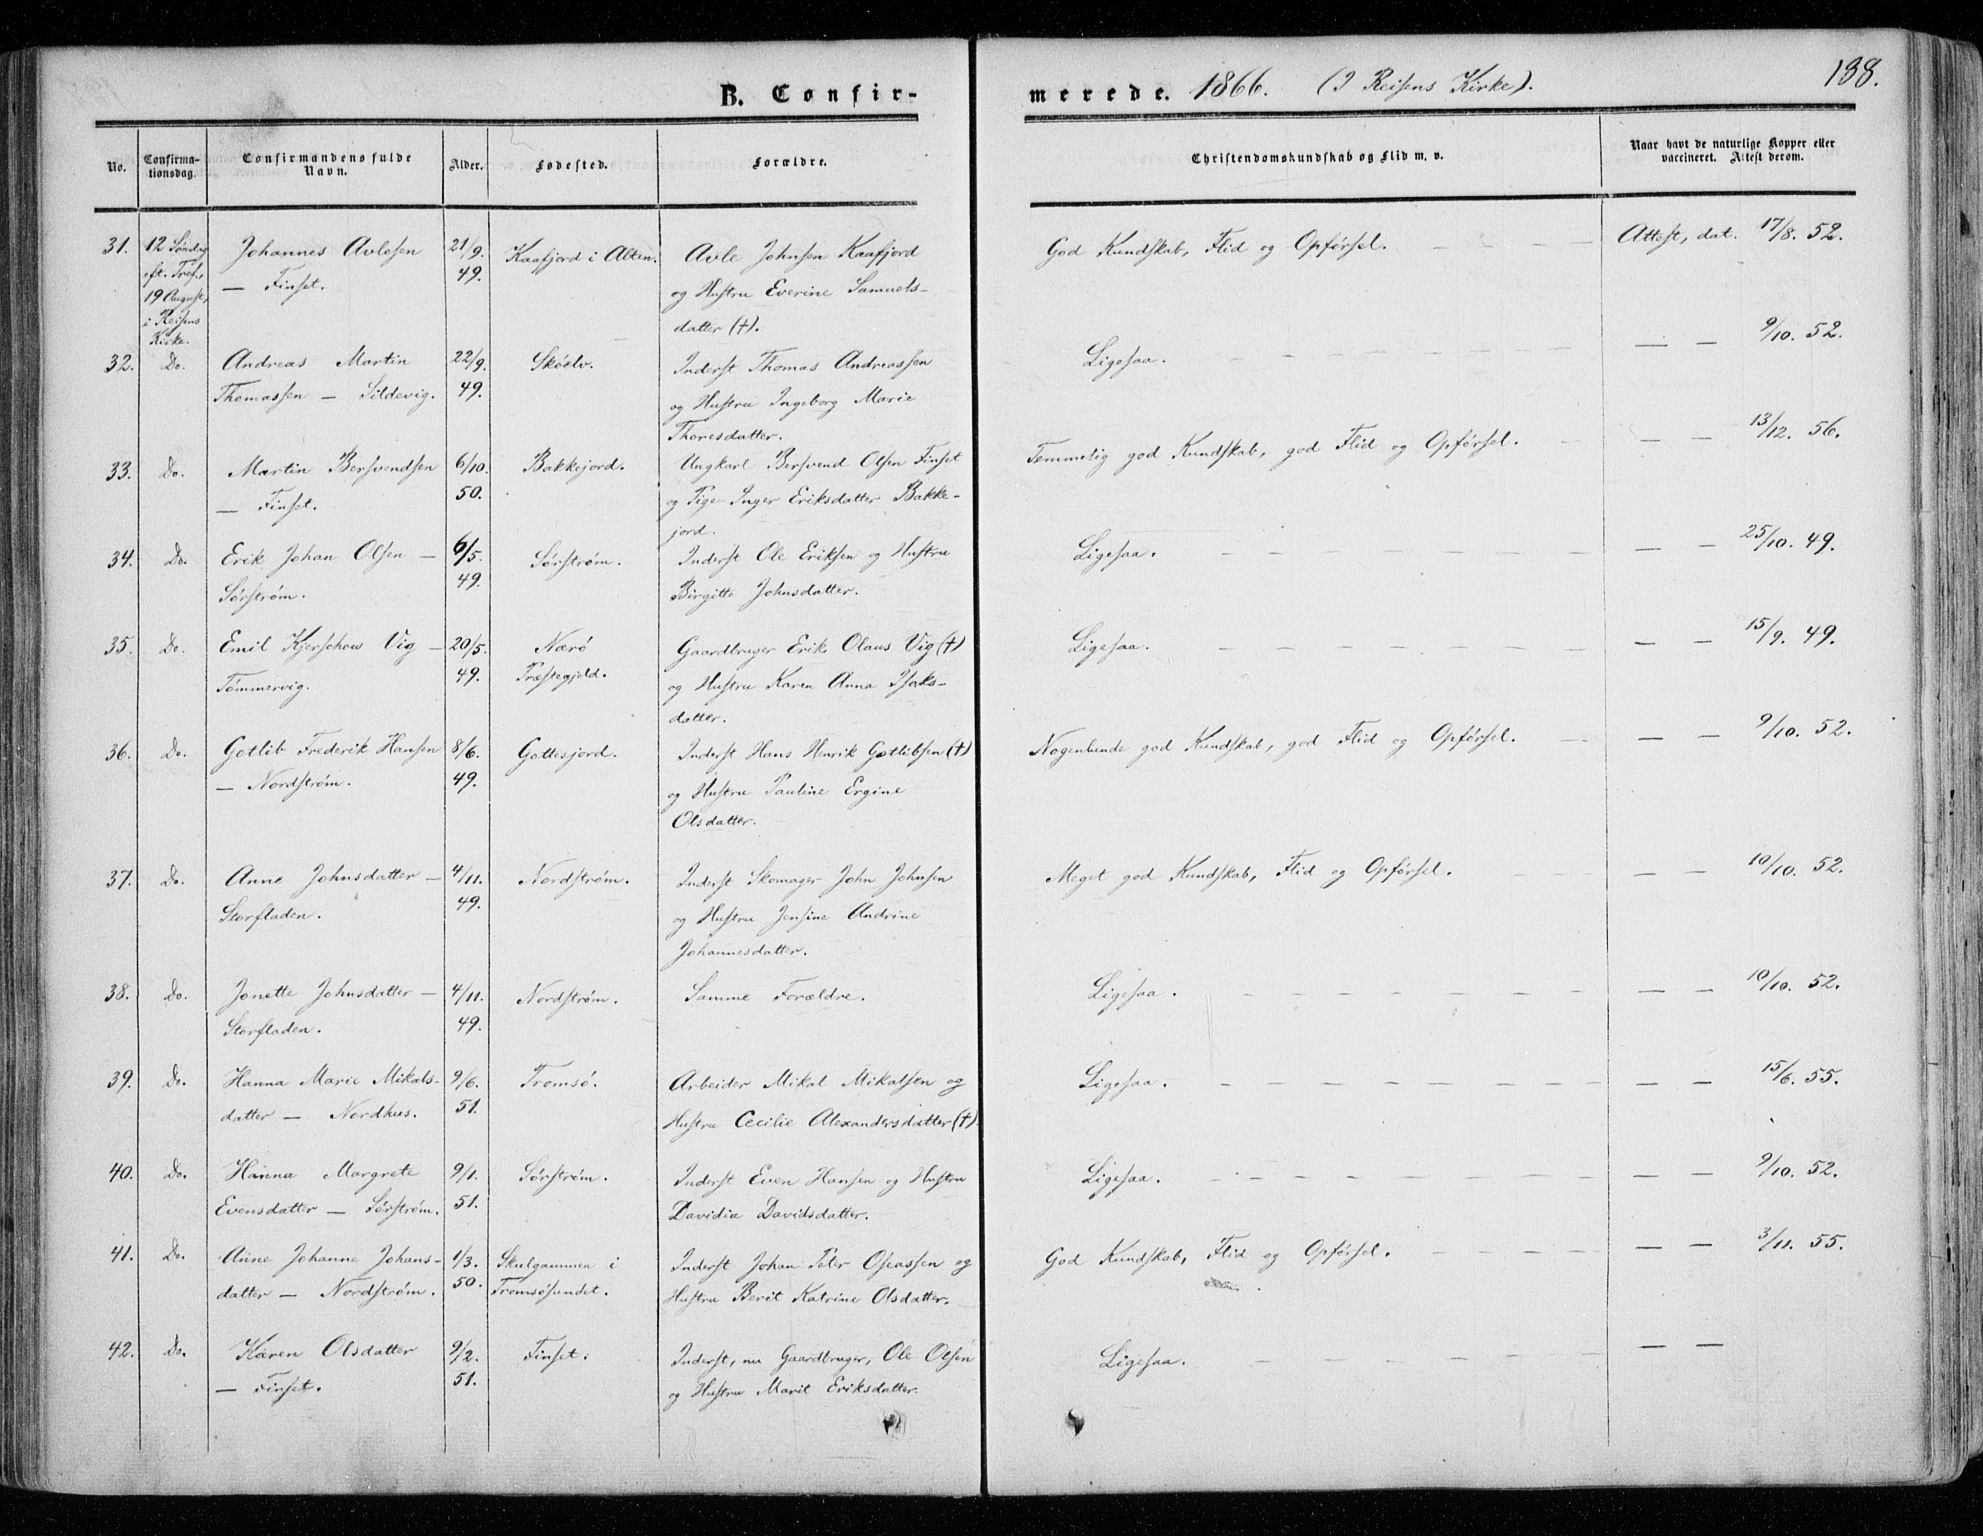 138.
B. Confirmerede. 1866. (I Reisens Kirke).
No.
Confirmationsdag.
Confirmandens fulde Navn.
Alder.
Fødested.
Forældre.
Christendomskundskab og Flid m. v.
Naar havt de naturlige Kopper eller
vaccineret. Attest derom.
31. 12 Søndag Johannes Avlesen 21/9. Kaafjord i Alten. Avle Johnsen Kaafjord God Kundskab, Flid og Opførsel. — — — Attest, dat. 17/8. 52.
eft. Tref. — Finset. 49. og Hustru Everine Samuels-
19 August, datter (†).
i Reisens
Kirke.
32. Do. Andreas Martin 22/9. Skóelv. Inderst Thomas Andreassen Ligesaa. — — 9/10. 52.
Thomassen — Sildevig. 49. og Hustru Ingeborg Marie
Thoresdatter.
33. Do. Martin Bersvendsen 6/10. Bakkejord. Ungkarl Bersvend Olsen Finset Temmelig god Kundskab, god Flid og Opførsel. — — 13/12. 56.
— Finset. 50. og Pige Inger Eriksdatter Bakke-
jord.
34. Do. Erik Johan Olsen — 6/5. Sørstrøm. Inderst Ole Eriksen og Hustru Ligesaa. — — 25/10. 49.
Sørstrøm. 49. Birgitte Johnsdatter.
35. Do. Emil Kjerschow Vig — 20/5. Nærö Gaardbruger Erik Olaus Vig (†) Ligesaa. — — 15/9. 49.
Tömmervig. 49. Præstegjeld. og Hustru Karen Anna Isaks-
datter.
36. Do. Gotlib Frederik Hansen 8/6. Gottesjord. Inderst Hans Henrik Gotlibsen (†) Nogenlunde god Kundskab, god Flid og Opførsel. — — 9/10. 52.
— Nordstrøm. 49. og Hustru Pauline Ergine
Olsdatter.
37. Do. Anne Johnsdatter — 4/11. Nordstrøm. Inderst Skomager John Johnsen Meget god Kundskab, Flid og Opførsel. — — 10/10. 52.
Storfladen. 49. og Hustru Jensine Andrine
Johannesdatter.
38. Do. Jonette Johnsdatter — 4/11. Nordstrøm. Samme Forældre. Ligesaa. — — 10/10. 52.
Storfladen. 49.
39. Do. Hanna Marie Mikals- 9/6. Tromsö. Arbeider Mikal Mikalsen og Ligesaa. — — 15/6. 55.
datter — Nordhus. 51. Hustru Cecilie Alexandersdatter (†).
40. Do. Hanna Margrete 9/1. Sørstrøm. Inderst Even Hansen og Hustru Ligesaa. — — 9/10. 52.
Evensdatter — Sørstrøm. 51. Davidia Davidsdatter.
41. Do. Anne Johanne Johans- 1/3. Skulgammen i Inderst Johan Peter Oseassen og God Kundskab, Flid og Opførsel. — — 3/11. 55.
datter — Nordstrøm. 50. Tromsösundet. Hustru Berit Katrine Olsdatter.
42. Do. Karen Olsdatter 9/2. Finset. Inderst, nu Gaardbruger, Ole Olsen Ligesaa. — —
— Finset. 51. og Hustru Marit Eriksdatter.